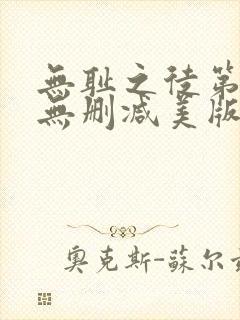 無耻之徒第
無删减美版
奥克斯-蘇尔